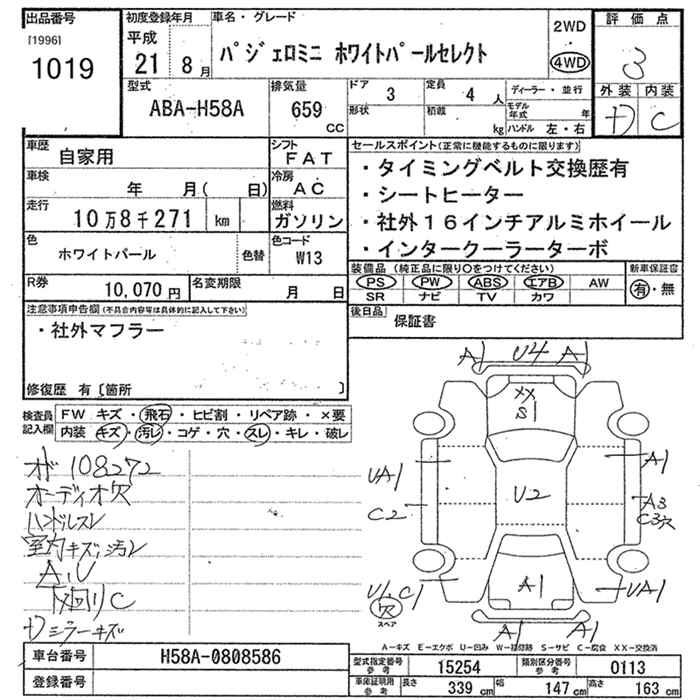 出品番号
[1996]
1019
初度登録年月
平成
21 8月
車名・グレード
パジェロミニ ホワイトパールセレクト
2WD
4WD
評価点
3
外装 内装
D C
型式
ABA-H58A
排気量
659 CC
ドア 3
形状
定員 4 人
積載 kg
ディーラー・並行
モデル年式 年
ハンドル 左・右
車歴 自家用
シフト FAT
車検 年 月( 日)
冷房 AC
走行 10万8千271 km
燃料 ガソリン
色 ホワイトパール
色替
色コード W13
R券 10,070円
名変期限 月 日
セールスポイント(正常に機能するものに限ります)
・タイミングベルト交換歴有
・シートヒーター
・社外16インチアルミホイール
・インタークーラーターボ
装備品 (純正品に限り○をつけてください)
PS PW ABS エアB AW
SR ナビ TV カワ
新車保証書
有・無
後日品 保証書
注意事項申告欄(不具合内容等は具体的に記入して下さい)
・社外マフラー
修復歴 有 [箇所 ]
検査員記入欄
FW キズ・飛石・ヒビ割・リペア跡・×要
内装 キズ・汚レ・コゲ・穴・スレ・キレ・破レ
オド108272
オーディオ穴
ハンドルスレ
室内キズ,汚レ
A,U
下廻りC
ミラーキズ
A1 U4 A1
XX
S1
UA1
A1
U2
C2
A3
C3穴
U1,C1
穴
スペア
A1
UA1
A1 A1
A-キズ E-エクボ U-凹み W-補修跡 S-サビ C-腐食 XX-交換済
車台番号 H58A-0808586
登録番号
型式指定番号 参考 15254
類別区分番号 参考 0113
車庫証明用 参考 長さ 339 cm 幅 147 cm 高さ 163 cm